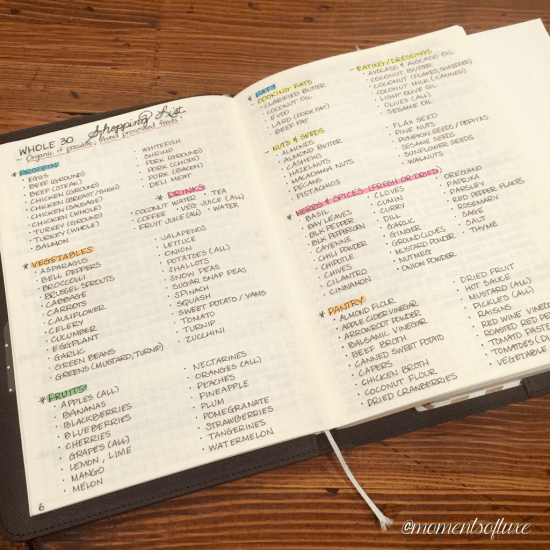 WHOLE 30 Shopping List
Organic if possible, Avoid processed foods!
* PROTEIN:
· EGGS
· BEEF (GROUND)
· BEEF (STEAK)
· CHICKEN (GROUND)
· CHICKEN (BREAST/THIGH)
· CHICKEN (SAUSAGE)
· CHICKEN (WHOLE)
· TURKEY (GROUND)
· TURKEY (WHOLE)
· SALMON
· WHITEFISH
· SHRIMP
· PORK (GROUND)
· PORK (CHOPS)
· PORK (BACON)
· DELI MEAT
* DRINKS
· COCONUT WATER · TEA
· COFFEE · VEG JUICE (ALL)
· FRUIT JUICE (ALL) · WATER
* VEGETABLES
· ASPARAGUS
· BELL PEPPERS
· BROCCOLI
· BRUSSEL SPROUTS
· CABBAGE
· CARROTS
· CAULIFLOWER
· CELERY
· CUCUMBER
· EGGPLANT
· GARLIC
· GREEN BEANS
· GREENS (MUSTARD, TURNIP)
· JALAPENOS
· LETTUCE
· ONION
· POTATOES (ALL)
· SHALLOTS
· SNOW PEAS
· SUGAR SNAP PEAS
· SPINACH
· SQUASH
· SWEET POTATO / YAMS
· TOMATO
· TURNIP
· ZUCCHINI
* FRUITS:
· APPLES (ALL)
· BANANAS
· BLACKBERRIES
· BLUEBERRIES
· CHERRIES
· GRAPES (ALL)
· LEMON, LIME
· MANGO
· MELON
· NECTARINES
· ORANGES (ALL)
· PEACHES
· PINEAPPLE
· PLUM
· POMEGRANATE
· STRAWBERRIES
· TANGERINES
· WATERMELON
6
* FATS
COOKING FATS
· CLARIFIED BUTTER
· COCONUT OIL
· EVOO
· LARD (PORK FAT)
· BEEF FAT
- EATING/DRESSINGS
· AVOCADO & AVOCADO OIL
· COCONUT BUTTER
· COCONUT (FLAKES, SHREDDED)
· COCONUT MILK (CANNED)
· LIGHT OLIVE OIL
· OLIVES (ALL)
· SESAME OIL
NUTS & SEEDS
· ALMONDS
· ALMOND BUTTER
· CASHEWS
· HAZELNUTS
· MACADAMIA NUTS
· PECANS
· PISTACHIOS
· FLAX SEED
· PINE NUTS
· PUMPKIN SEEDS / PEPITAS
· SESAME SEEDS
· SUNFLOWER SEEDS
· WALNUTS
* HERBS & SPICES (FRESH OR DRIED)
· BASIL
· BAY LEAVES
· BLK PEPPER
· BLK PEPPERCORN
· CAYENNE
· CHILI POWDER
· CHIPOTLE
· CHIVES
· CILANTRO
· CINNAMON
· CLOVES
· CUMIN
· CURRY
· DILL
· GARLIC
· GINGER
· GROUND CLOVES
· MUSTARD POWDER
· NUTMEG
· ONION POWDER
· OREGANO
· PAPRIKA
· PARSLEY
· RED PEPPER FLAKES
· ROSEMARY
· SAGE
· SALT
· THYME
* PANTRY
· ALMOND FLOUR
· APPLE CIDER VINEGAR
· ARROWROOT POWDER
· BALSAMIC VINEGAR
· BEEF BROTH
· CANNED SWEET POTATO
· CAPERS
· CHICKEN BROTH
· COCONUT FLOUR
· DRIED CRANBERRIES
· DRIED FRUIT
· HOT SAUCE
· MUSTARD (ALL)
· PICKLES (ALL)
· RAISINS
· RED WINE VINEG
· ROASTED RED PE
· TOMATO PASTE
· TOMATOES (DI
· VEGETABLE
@momentsofluxe